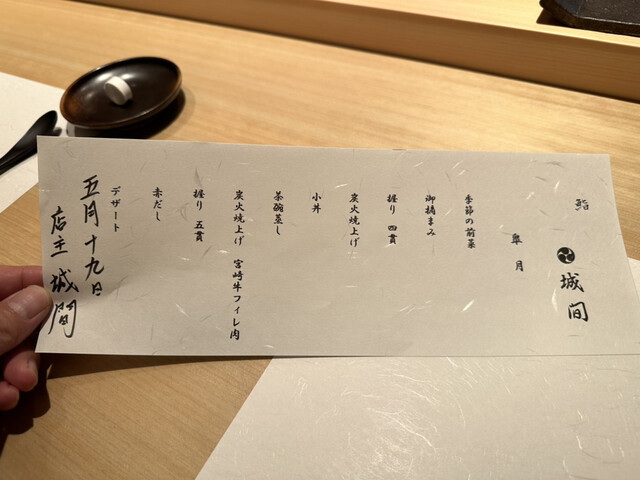 鮨 城間
皐月
季節の前菜
御摘まみ
握り 四貫
炭火焼上げ
小丼
茶碗蒸し
炭火焼上げ 宮崎牛フィレ肉
握り 五貫
赤だし
デザート
五月十九日
店主 城間